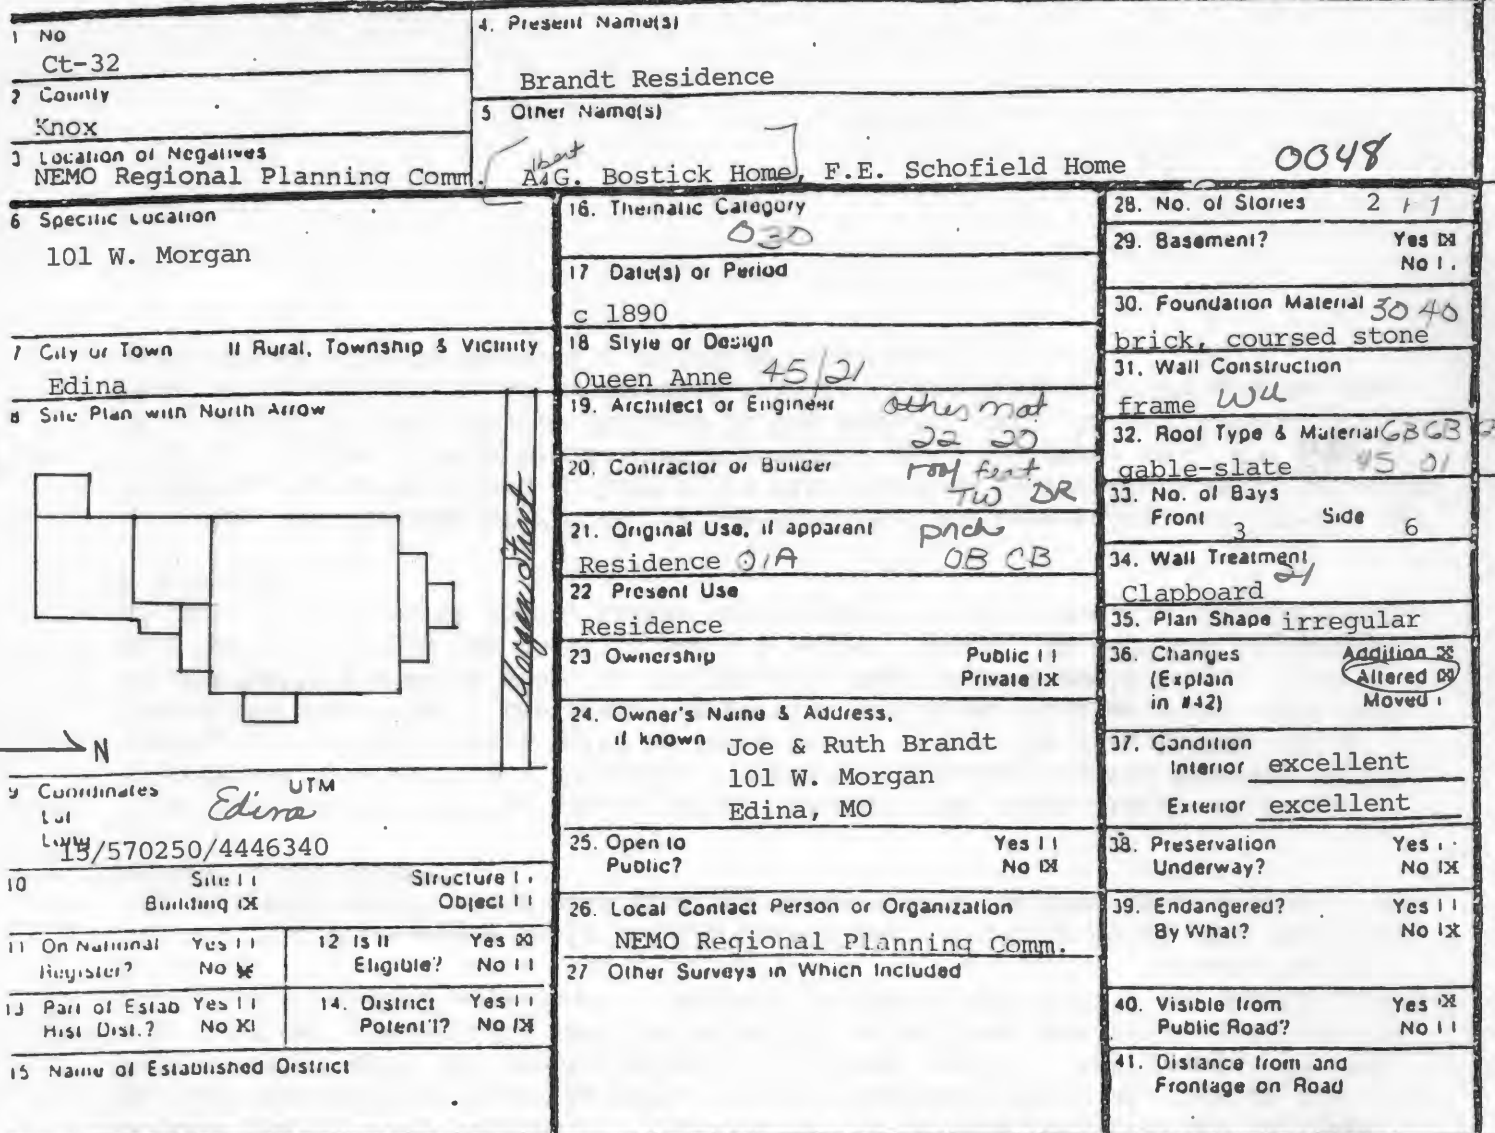 1 No
Ct-32
2 County
Knox
3 Location of Negatives
NEMO Regional Planning Comm.
4. Present Name(s)
Brandt Residence
5 Other Name(s)
A.G. Bostick Home, F.E. Schofield Home
lbert
0048
6 Specific Location
101 W. Morgan
7 City or Town If Rural, Township & Vicinity
Edina
8 Site Plan with North Arrow
Morgan Street
N
9 Coordinates UTM
Lat
Long
Edina
15/570250/4446340
10 Site Structure
Building X Object
11 On National Yes
Register? No X
12 Is It Yes X
Eligible? No
13 Part of Estab Yes
Hist Dist.? No X
14. District Yes
Potent'l? No X
15 Name of Established District
16. Thematic Category
030
17 Date(s) or Period
c 1890
18 Style or Design
Queen Anne 45/21
19. Architect or Engineer
other mat
22 20
20. Contractor or Builder
roof feat
TW DR
21. Original Use, if apparent
Residence 01A
prch
OB CB
22 Present Use
Residence
23 Ownership Public
Private X
24. Owner's Name & Address,
if known Joe & Ruth Brandt
101 W. Morgan
Edina, MO
25. Open to Yes
Public? No X
26. Local Contact Person or Organization
NEMO Regional Planning Comm.
27 Other Surveys in Which Included
28. No. of Stories 2
29. Basement? Yes X
No
30. Foundation Material 30 40
brick, coursed stone
31. Wall Construction
frame WU
32. Roof Type & Material GB GB
gable-slate 45 01
33. No. of Bays
Front 3 Side 6
34. Wall Treatment
21
Clapboard
35. Plan Shape irregular
36. Changes Addition X
(Explain Altered X
in #42) Moved
37. Condition
Interior excellent
Exterior excellent
38. Preservation Yes
Underway? No X
39. Endangered? Yes
By What? No X
40. Visible from Yes X
Public Road? No
41. Distance from and
Frontage on Road